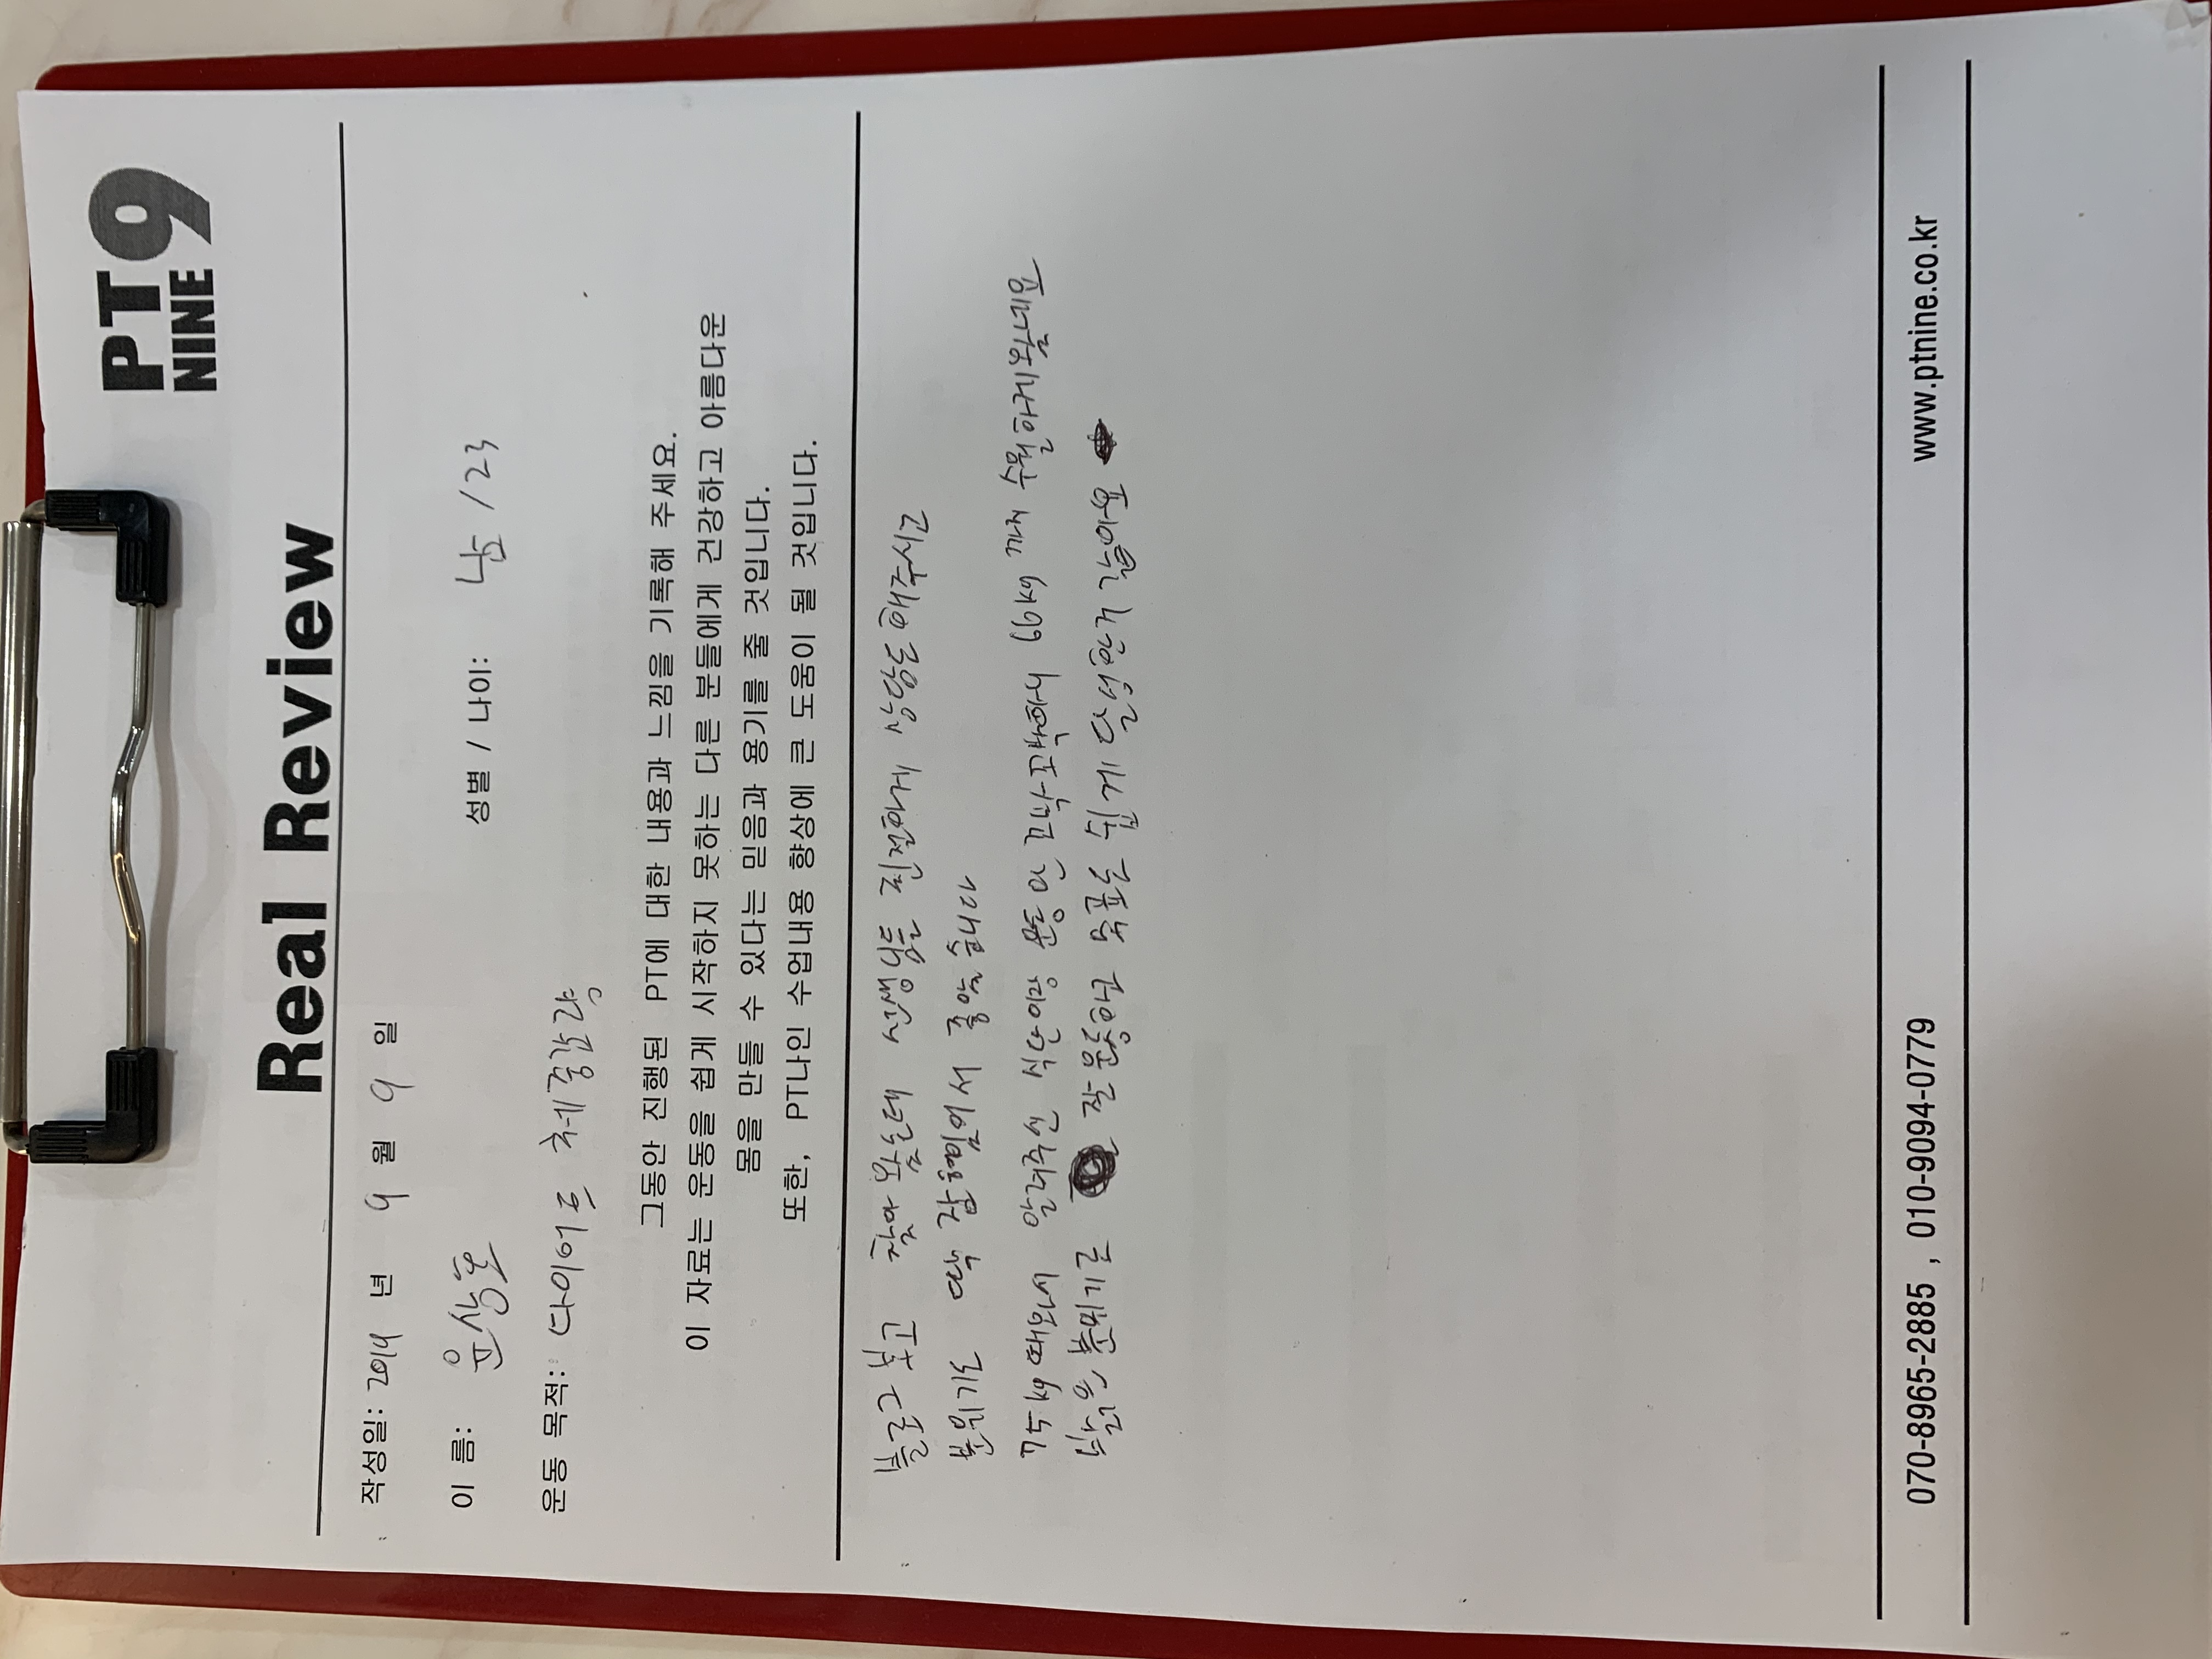 PT
NINE 9
Real Review
작성일: 2019 년 9 월 9 일
이 름: 윤상호 성별 / 나이: 남 / 23
운동 목적: 다이어트 체중감량
그동안 진행된 PT에 대한 내용과 느낌을 기록해 주세요.
이 자료는 운동을 쉽게 시작하지 못하는 다른 분들에게 건강하고 아름다운
몸을 만들 수 있다는 믿음과 용기를 줄 것입니다.
또한, PT나인 수업내용 향상에 큰 도움이 될 것입니다.
블로그 보고 찾아 왔는데 선생님들 친절하게 상담을 해주시고
분위기도 딱 잡혀있어서 좋았습니다
75kg 때와서 알려주신 식단이랑 운동 만 꼬박꼬박해서 66kg 까지 수월하게 왔네요
남은 잘 운동하고 목표를 쉽게 달성한거 같아요
070-8965-2885 , 010-9094-0779 www.ptnine.co.kr